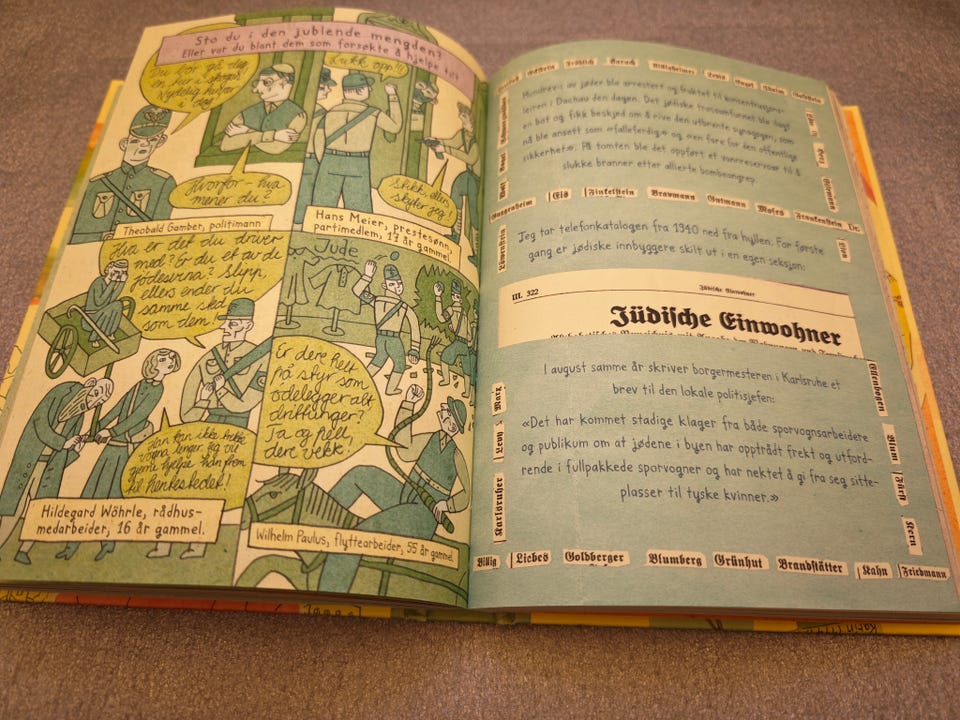 Sto du i den jublende mengden?
Eller var du blant dem som forsøkte å hjelpe til?
Du bør gå deg
en tur i skogen.
Nydelig høstvær
i dag
Hvorfor – hva
mener du?
Theobald Gamber, politimann
Lukk opp!!!
Stikk, eller
skyter jeg!
Hans Meier, prestesønn,
partimedlem, 17 år gammel.
Hva er det du driver
med? Er du et av de
jødesvina? Slipp,
ellers ender du
samme sted
som dem!
Han kan ikke trekke
vogna lenger. Jeg vil
gjerne hjelpe han frem
til hentestedet!
Hildegard Wöhrle, rådhus-
medarbeider, 16 år gammel.
Jude
Er dere helt
på styr som
ødelegger alt
Ja og hell,
dere vekk!
Wilhelm Paulus, flyttearbeider, 55 år gammel
Hundrevis av jøder ble arrestert og fraktet til konsentrasjons-
leiren i Dachau den dagen. Det jødiske trossamfunnet ble ilagt
en bot og fikk beskjed om å rive den utbrente synagogen, som
nå ble ansett som «falleferdig» og «en fare for den offentlige
sikkerhet». På tomten ble det oppført et vannreservoar til å
slukke branner etter allierte bombeangrep.
Gutmann Moses Frankenstein Dr.
Eis Finkelstein
Löwenstein
Jeg tar telefonkatalogen fra 1940 ned fra hyllen. For første
gang er jødiske innbyggere skilt ut i en egen seksjon:
III. 322
Jüdische Einwohner
Jüdische Einwohner
I august samme år skriver borgermesteren i Karlsruhe et
brev til den lokale politisjefen:
«Det har kommet stadige klager fra både sporvognsarbeidere
og publikum om at jødene i byen har opptrådt frekt og utford-
rende i fullpakkede sporvogner og har nektet å gi fra seg sitte-
plasser til tyske kvinner.»
Marx
Levy
Karlsruher
Ellenbogen
Blum
Fürth
Stern
Billig Liebes Goldberger Blumberg Grünhut Brandstätter Kahn Friedmann